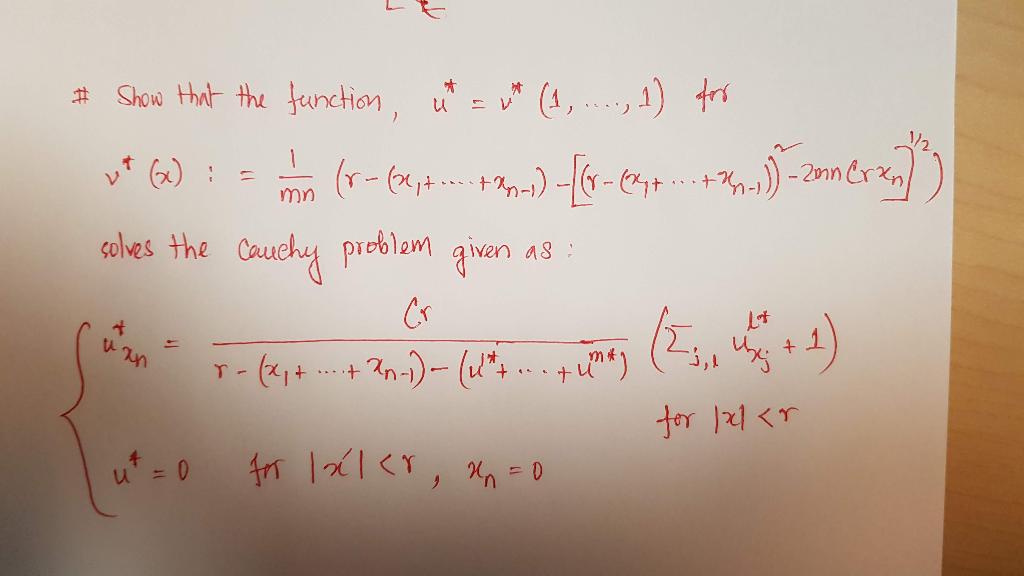 # Show that the function, u* = v* (1, ...., 1) for
v* (x) : = 1/mn (r - (x₁ + ..... + xₙ₋₁) - [(r - (x₁ + ... + xₙ₋₁))² - 2mn Cr xₙ]^1/2)
solves the Cauchy problem given as :
u*ₓₙ = Cr / (r - (x₁ + ..... + xₙ₋₁) - (u¹* + ... + uᵐ*)) (Σⱼ,ₗ uˡ*ₓⱼ + 1)
for |x| < r
u* = 0 for |x'| < r, xₙ = 0